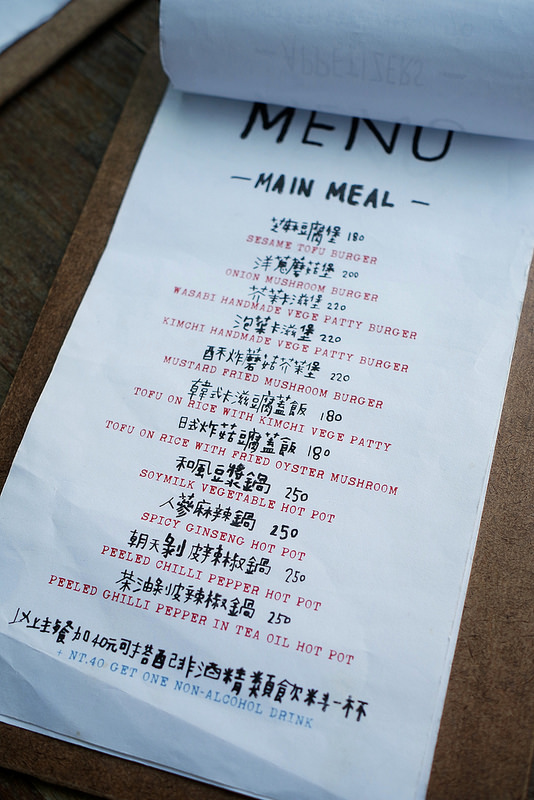 — APPETIZERS —
MENU
— MAIN MEAL —
芝麻豆腐堡 180
SESAME TOFU BURGER
洋蔥蘑菇堡 200
ONION MUSHROOM BURGER
芥茉卡滋堡 220
WASABI HANDMADE VEGE PATTY BURGER
泡菜卡滋堡 220
KIMCHI HANDMADE VEGE PATTY BURGER
酥炸蘑菇芥茉堡 220
MUSTARD FRIED MUSHROOM BURGER
韓式卡滋豆腐蓋飯 180
TOFU ON RICE WITH KIMCHI VEGE PATTY
日式炸菇豆腐蓋飯 180
TOFU ON RICE WITH FRIED OYSTER MUSHROOM
和風豆漿鍋 250
SOYMILK VEGETABLE HOT POT
人蔘麻辣鍋 250
SPICY GINSENG HOT POT
朝天剝皮辣椒鍋 250
PEELED CHILLI PEPPER HOT POT
茶油剝皮辣椒鍋 250
PEELED GHILLI PEPPER IN TEA OIL HOT POT
以上主餐加40元可搭配非酒精類飲料一杯
+ NT.40 GET ONE NON-ALCOHOL DRINK